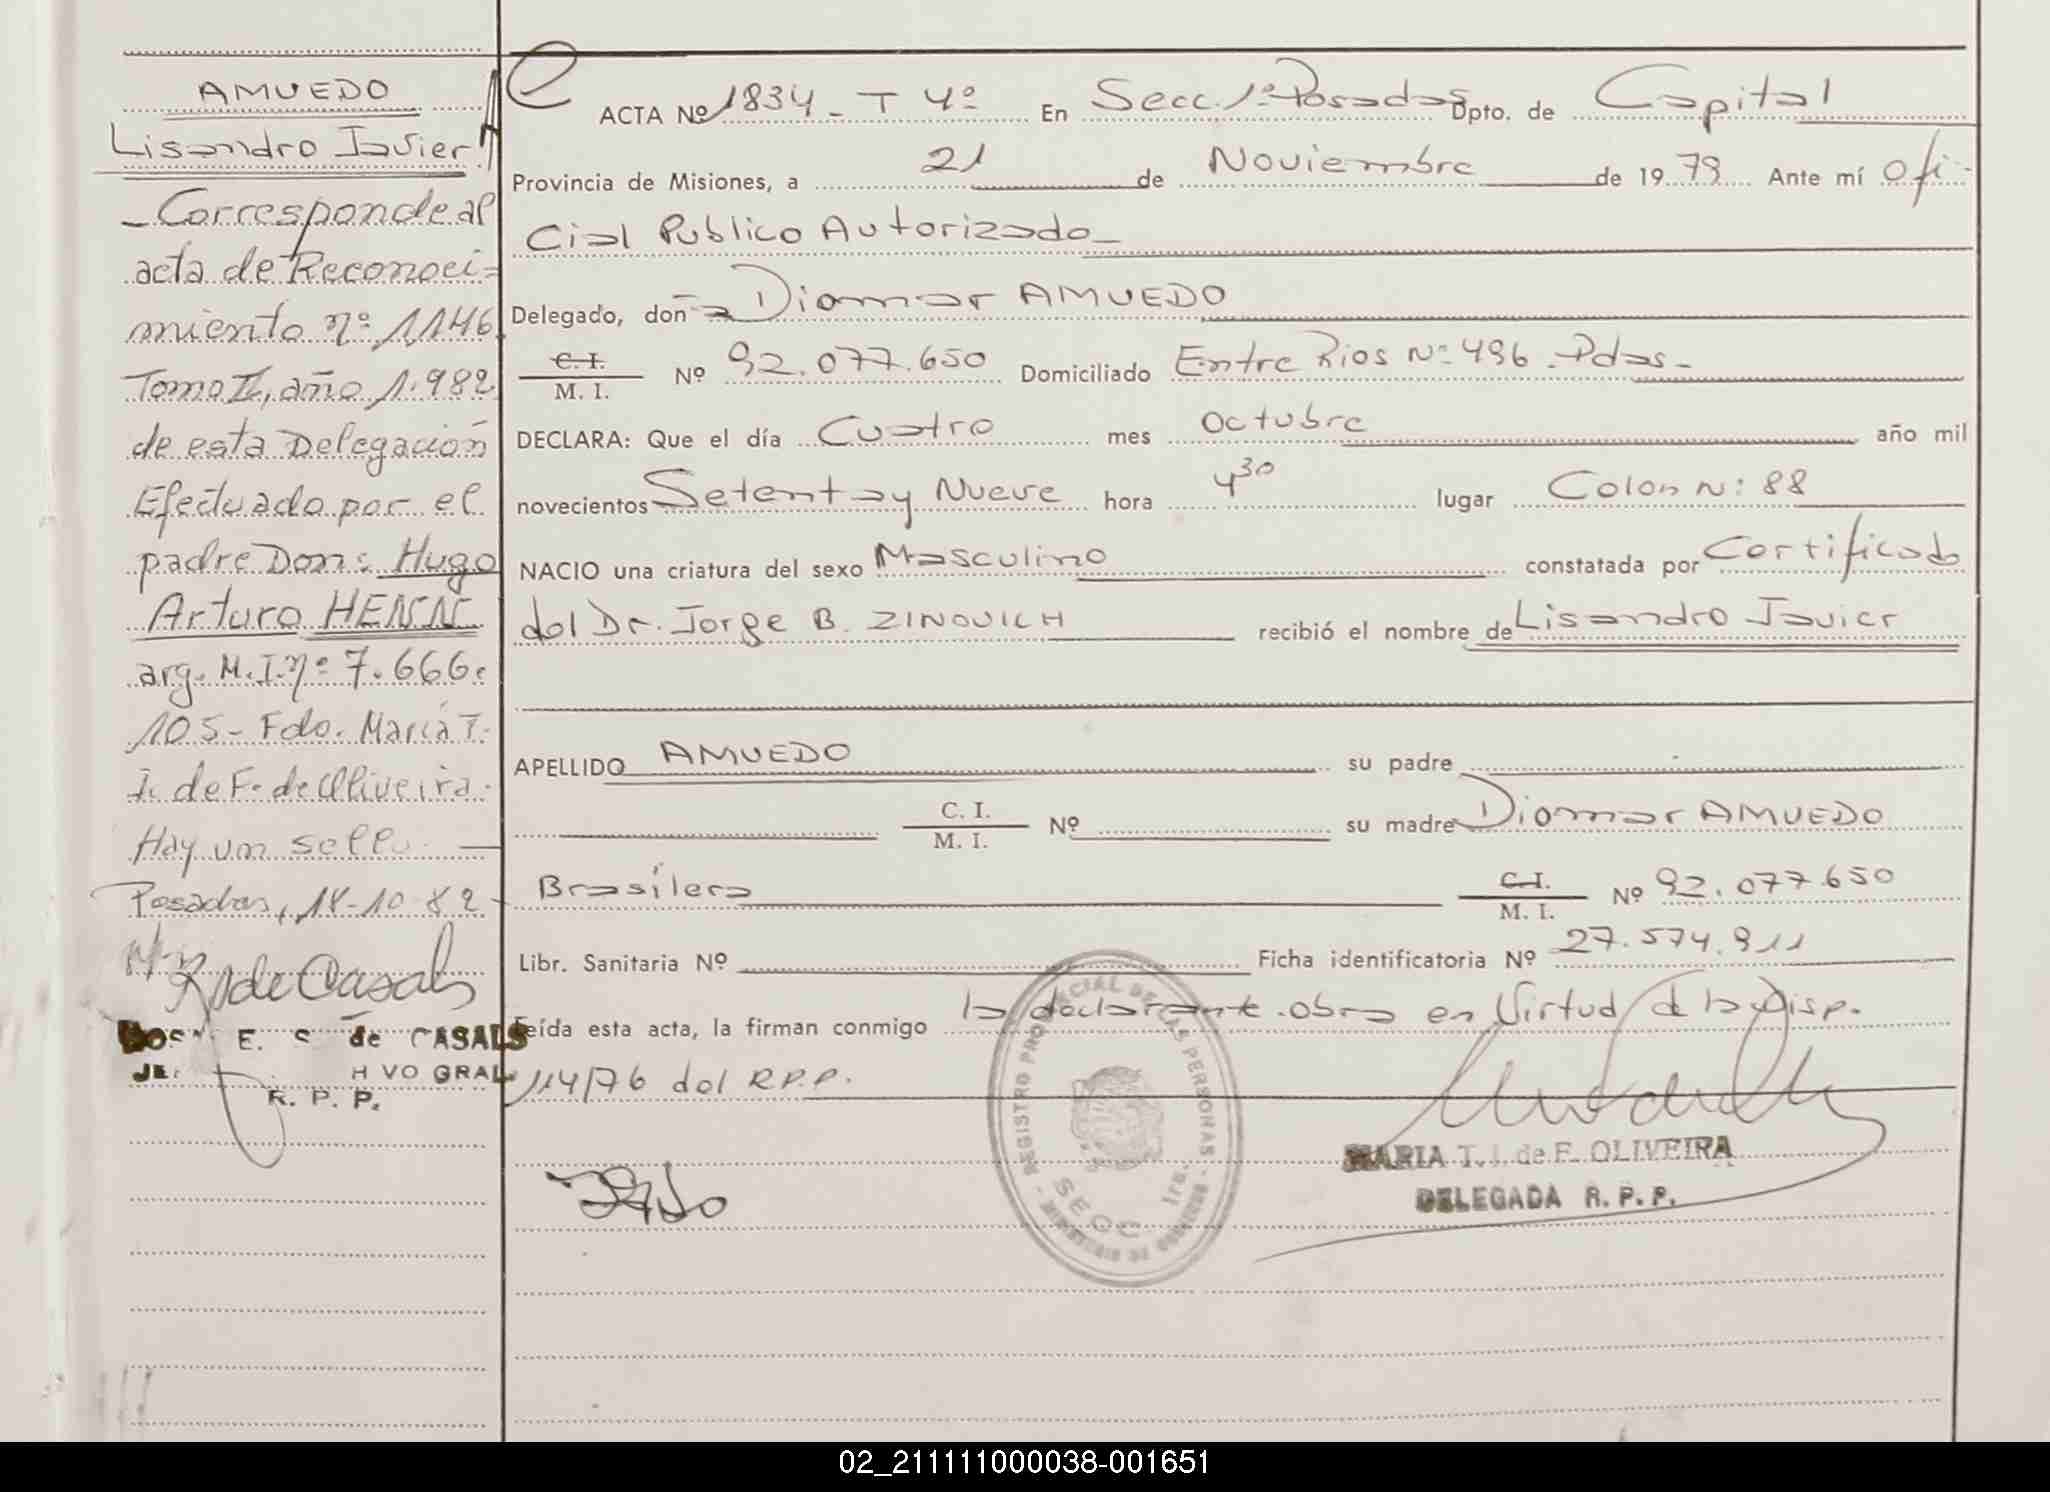 AMUEDO
Lisandro Javier
- Corresponde al
acta de Reconoci=
miento nº 1146
Tomo II, año 1.982
de esta Delegación
Efectuado por el
padre Don: Hugo
Arturo HENN
arg. M.I. nº 7.666.
105- Fdo. María T.
I. de F. de Oliveira.
Hay un sello.
Posadas, 18-10-82-
R. de Casals
E. S. de CASALS
VO GRAL.
R. P. P.
ACTA Nº 1834_ T 4º En Secc. 1ª Posadas Dpto. de Capital
Provincia de Misiones, a 21 de Noviembre de 1979 Ante mí ofi-
cial Publico Autorizado_
Delegado, don a Diamar AMUEDO
C. I. / M. I. Nº 92.077.650 Domiciliado Entre Rios Nº 496 - Pdas-
DECLARA: Que el día Cuatro mes octubre año mil
novecientos Setenta y Nueve hora 4 30 lugar Colon N: 88
NACIO una criatura del sexo Masculino constatada por Certificado
del Dr. Jorge B. ZINOVICH recibió el nombre de Lisandro Javier
APELLIDO AMUEDO su padre
C. I. / M. I. Nº su madre Diamar AMUEDO
Brasilera C. I. / M. I. Nº 92.077.650
Libr. Sanitaria Nº Ficha identificatoria Nº 27.574.911
Leída esta acta, la firman conmigo la declarante. obra en Virtud d la Disp.
114/76 del R.P.P.
REGISTRO PROVINCIAL DE LAS PERSONAS - MINISTERIO DE GOBIERNO -
SECC. 1ra.
MARIA T. I. de F. OLIVEIRA
DELEGADA R. P. P.
02_211111000038-001651